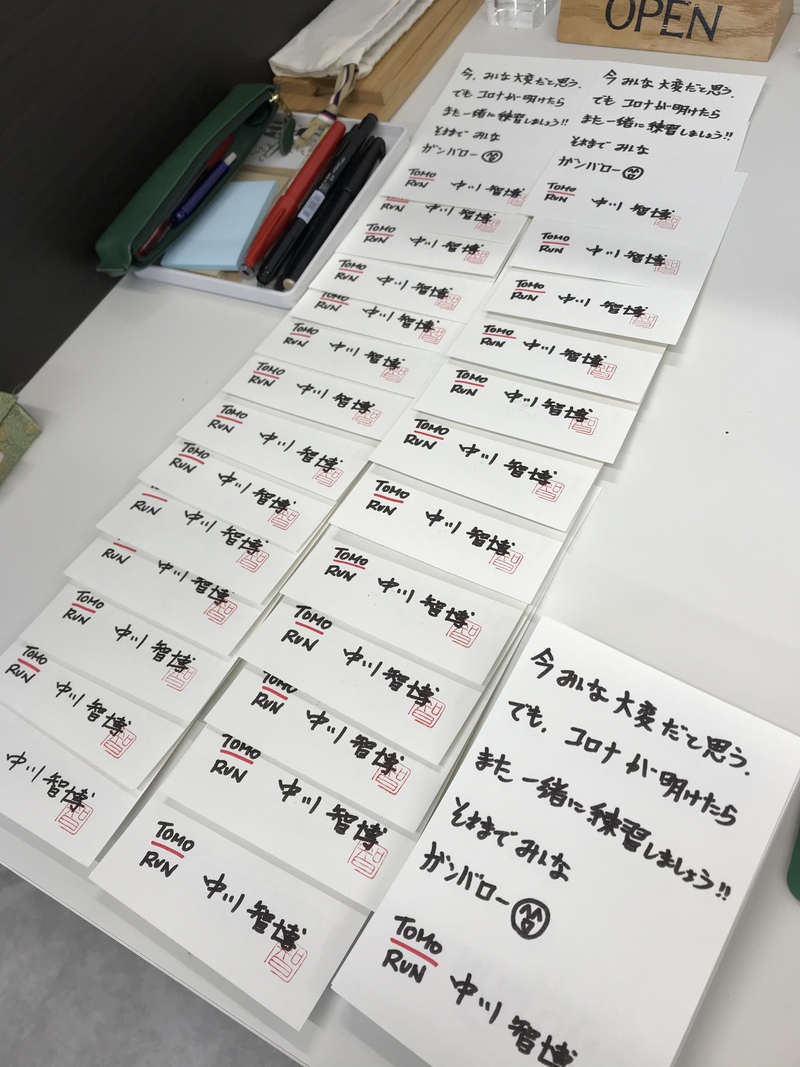 OPEN
今、みんな大変だと思う。
でも コロナが明けたら
また一緒に練習しましょう!!
それまで みんな
ガンバロー
TOMO
RUN 中川 智博
中川 智博
TOMO
RUN 中川 智博
TOMO
RUN 中川 智博
TOMO
RUN 中川 智博
TOMO
RUN 中川 智博
TOMO
RUN 中川 智博
TOMO
RUN 中川 智博
TOMO
RUN 中川 智博
RUN 中川 智博
RUN 中川 智博
TOMO
RUN 中川 智博
TOMO
RUN 中川 智博
中川 智博
今 みんな大変だと思う。
でも コロナが明けたら
また一緒に練習しましょう!!
それまで みんな
ガンバロー
TOMO
RUN 中川 智博
TOMO
RUN 中川 智博
TOMO
RUN 中川 智博
TOMO
RUN 中川 智博
TOMO
RUN 中川 智博
TOMO
RUN 中川 智博
TOMO
RUN 中川 智博
TOMO
RUN 中川 智博
TOMO
RUN 中川 智博
TOMO
RUN 中川 智博
TOMO
RUN 中川 智博
TOMO
RUN 中川 智博
今 みんな大変だと思う。
でも、コロナが明けたら
また一緒に練習しましょう!!
それまでみんな
ガンバロー
TOMO
RUN 中川 智博